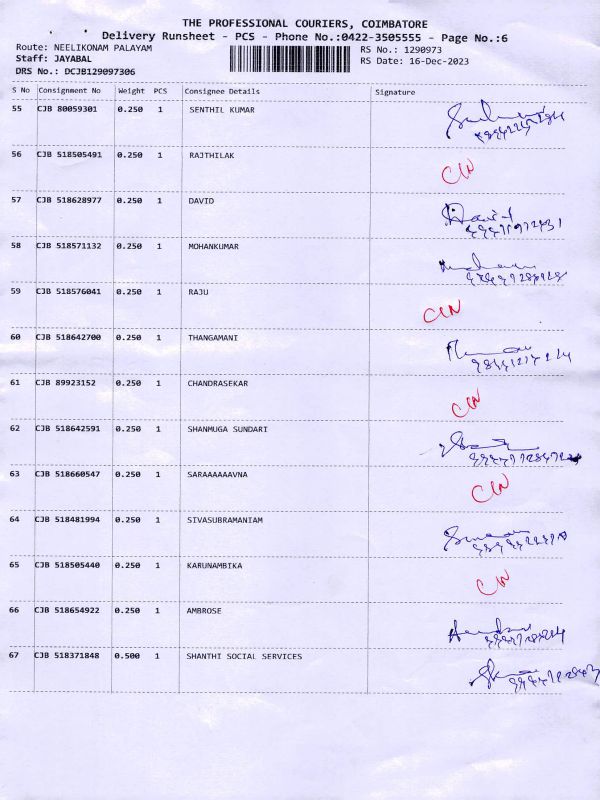 THE PROFESSIONAL COURIERS, COIMBATORE
Delivery Runsheet - PCS - Phone No.:0422-3505555 - Page No.:6
Route: NEELIKONAM PALAYAM RS No.: 1290973
Staff: JAYABAL RS Date: 16-Dec-2023
DRS No.: DCJB129097306
S No Consignment No Weight PCS Consignee Details Signature
55 CJB 80059301 0.250 1 SENTHIL KUMAR
56 CJB 518505491 0.250 1 RAJTHILAK
57 CJB 518628977 0.250 1 DAVID David
58 CJB 518571132 0.250 1 MOHANKUMAR
59 CJB 518576041 0.250 1 RAJU
60 CJB 518642700 0.250 1 THANGAMANI
61 CJB 89923152 0.250 1 CHANDRASEKAR
62 CJB 518642591 0.250 1 SHANMUGA SUNDARI
63 CJB 518660547 0.250 1 SARAAAAAAVNA
64 CJB 518481994 0.250 1 SIVASUBRAMANIAM
65 CJB 518505440 0.250 1 KARUNAMBIKA
66 CJB 518654922 0.250 1 AMBROSE
67 CJB 518371848 0.500 1 SHANTHI SOCIAL SERVICES